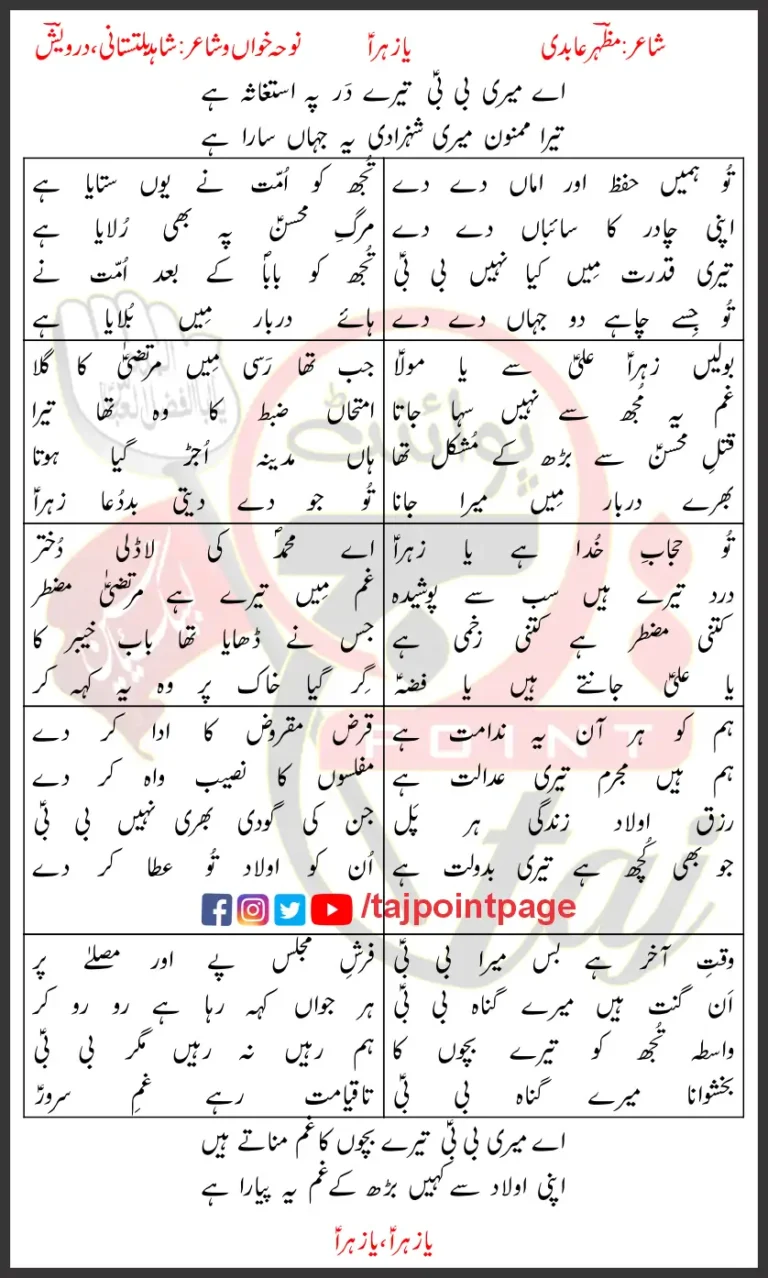 شاعر: مظہر عابدی
یا زہراؑ
نوحہ خواں و شاعر: شاہد بلتستانی، درویشؔ
اے میری بی بیؑ تیرے دَر پہ استغاثہ ہے
تیرا ممنون میری شہزادی یہ جہاں سارا ہے
تُو ہمیں حفظ اور اماں دے دے
اپنی چادر کا سائباں دے دے
تیری قدرت مِیں کیا نہیں بی بیؑ
تُو جِسے چاہے دو جہاں دے دے
تُجھ کو اُمّت نے یوں ستایا ہے
مرگِ محسنؑ پہ بھی رُلایا ہے
تُجھ کو باباؐ کے بعد اُمّت نے
ہائے دربار مِیں بُلایا ہے
بولیں زہراؑ علیؑ سے یا مولاؑ
غم یہ مُجھ سے نہیں سہا جاتا
قتلِ محسنؑ سے بڑھ کے مُشکل تھا
بھرے دربار مِیں میرا جانا
جب تھا رَسی مِیں مرتضیٰؑ کا گلا
امتحاں ضبط کا وہ تھا تیرا
ہاں مدینہ اُجڑ گیا ہوتا
تُو جو دے دیتی بددُعا زہراؑ
تُو حجابِ خُدا ہے یا زہراؑ
درد تیرے ہیں سب سے پوشیدہ
کتنی مضطر ہے کتنی زخمی ہے
یا علیؑ جانتے ہیں یا فضہؑ
اے محمدؐ کی لاڈلی دُختر
غم مِیں تیرے ہے مرتضیٰؑ مضطر
جس نے ڈھایا تھا باب خیبر کا
گِر گیا خاک پر وہ یہ کہہ کر
ہم کو ہر آن یہ ندامت ہے
ہم ہیں مجرم تیری عدالت ہے
رزق اولاد زندگی ہر پَل
جو بھی کُچھ ہے تیری بدولت ہے
قرض مقروض کا ادا کر دے
مفلسوں کا نصیب واہ کر دے
جن کی گودی بھری نہیں بی بیؑ
اُن کو اولاد تُو عطا کر دے
/tajpointpage
وقتِ آخر ہے بس میرا بی بیؑ
اَن گنت ہیں میرے گناہ بی بیؑ
واسطہ تُجھ کو تیرے بچوں کا
بخشوانا میرے گناہ بی بیؑ
فرشِ مجلس پے اور مصلےٰ پر
ہر جواں کہہ رہا ہے رو رو کر
ہم رہیں نہ رہیں مگر بی بیؑ
تا قیامت رہے غمِ سرورؑ
اے میری بی بیؑ تیرے بچوں کا غم مناتے ہیں
اپنی اولاد سے کہیں بڑھ کے غم یہ پیارا ہے
یا زہراؑ، یا زہراؑ
پوائنٹ
POINT
taj